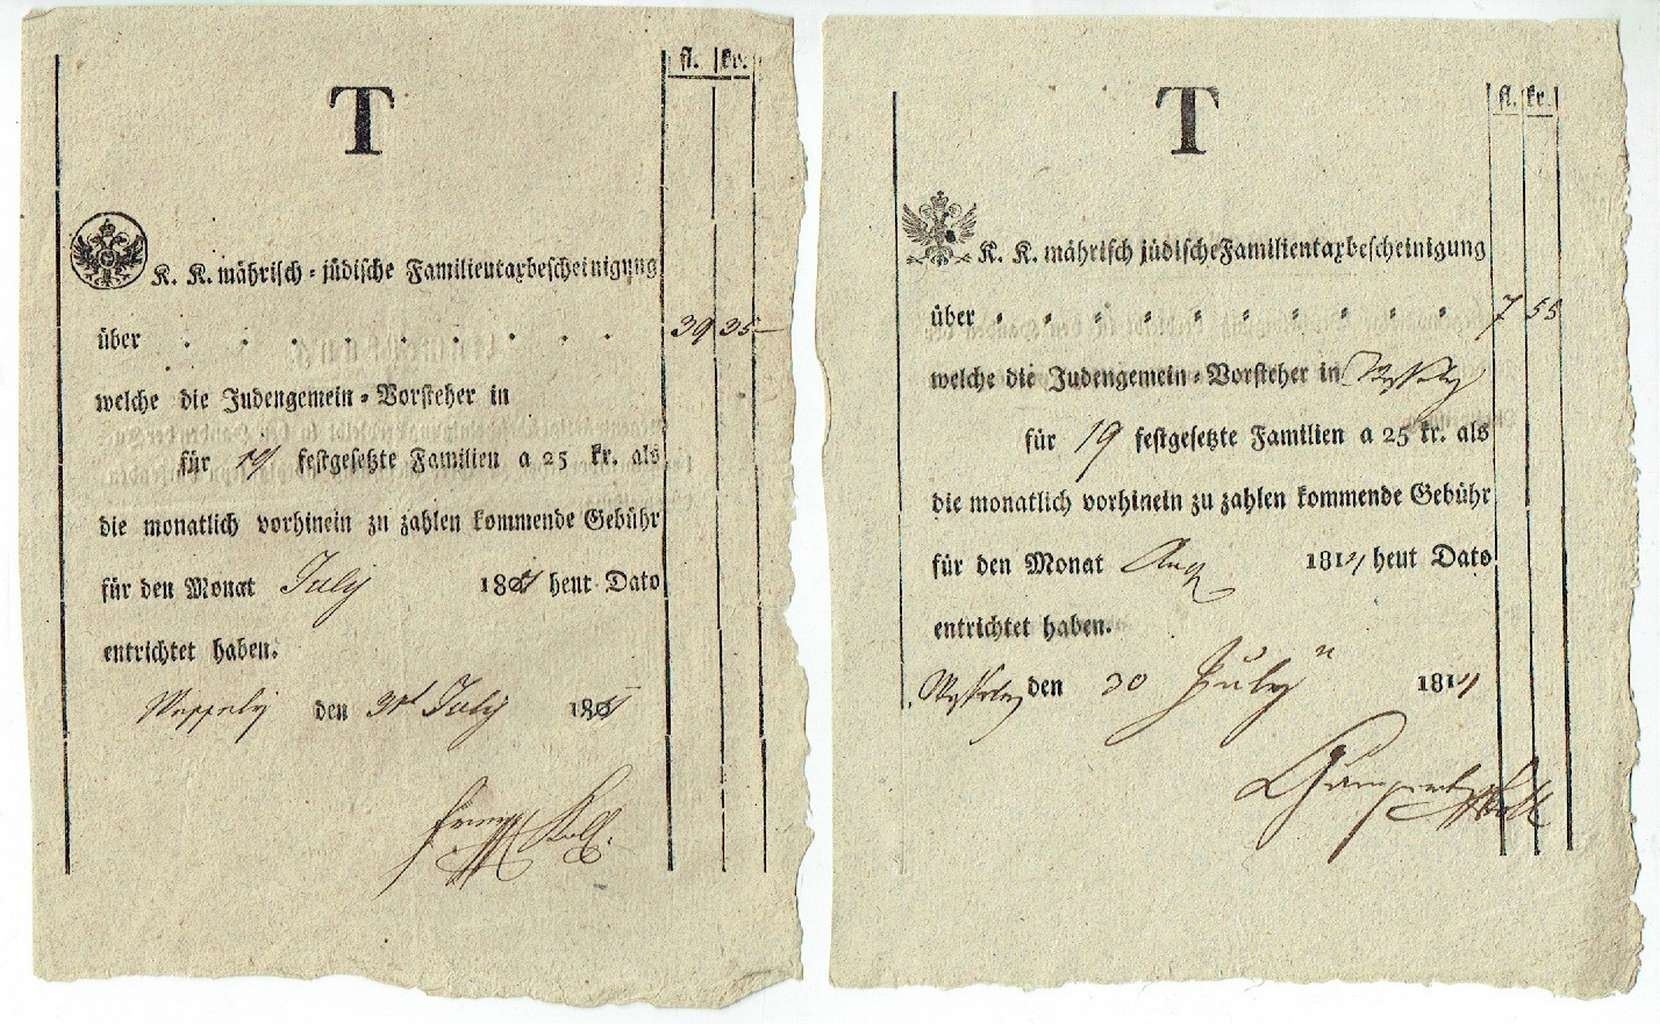 fl. kr.
T
K. K. mährisch-jüdische Familientaxbescheinigung
über . . . . . . . . . 39 35
welche die Judengemein-Vorsteher in
für 19 festgesetzte Familien a 25 kr. als
die monatlich vorhinein zu zahlen kommende Gebühr
für den Monat July 18 heut Dato
entrichtet haben.
den July 18
fl. kr.
T
K. K. mährisch jüdische Familientaxbescheinigung
über 7 55
welche die Judengemein-Vorsteher in
für 19 festgesetzte Familien a 25 kr. als
die monatlich vorhinein zu zahlen kommende Gebühr
für den Monat Aug 181 heut Dato
entrichtet haben.
den 30 July 181